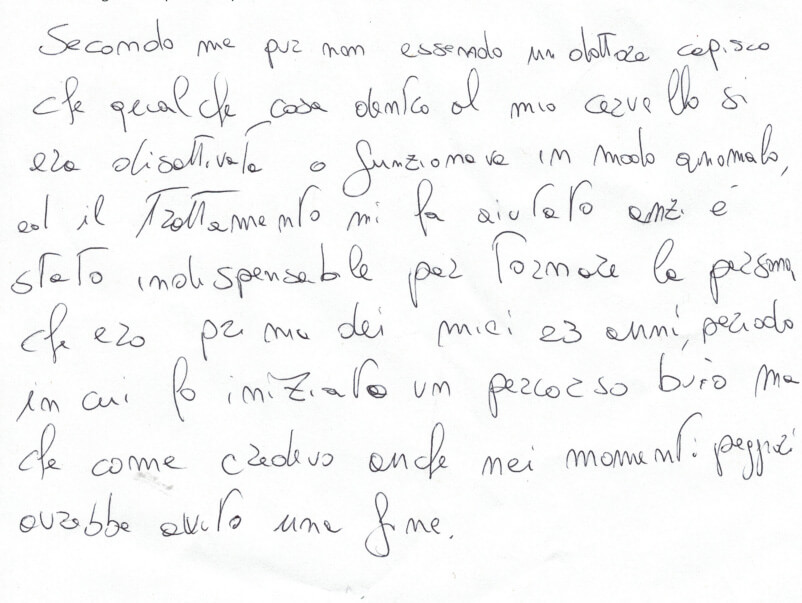 Secondo me pur non essendo un dottore capisco
che qualche cosa dentro al mio cervello si
era disattivata o funzionava in modo anomalo,
ed il trattamento mi ha aiutato anzi è
stato indispensabile per tornare la persona
che ero prima dei miei 23 anni, periodo
in cui ho iniziato un percorso buio ma
che come credevo anche nei momenti peggiori
avrebbe avuto una fine.